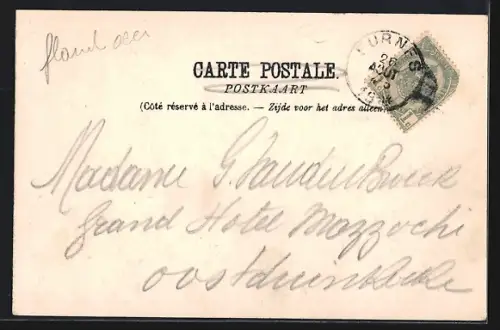 CARTE POSTALE.
POSTKAART
(Côté réservé à l'adresse. — Zijde voor het adres alleen)
FURNES
26
AOUT
Madame G. Vandenbroeck
Grand Hotel Mazzochi
Oostduinkerke